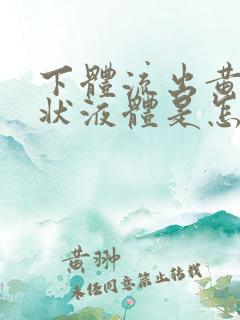 下體流出黃
狀液體是怎
黃翀
未經同意禁止轉載